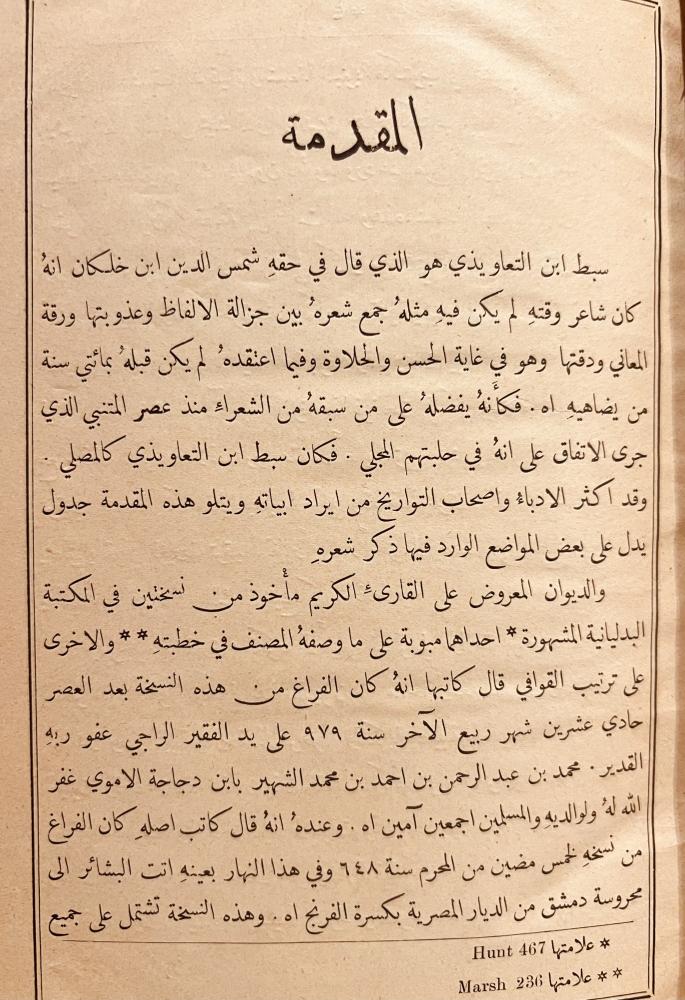 المقدمة
سبط ابن التعاويذي هو الذي قال في حقهِ شمس الدين ابن خلكان انهُ
كان شاعر وقتهِ لم يكن فيهِ مثلهُ جمع شعرهُ بين جزالة الالفاظ وعذوبتها ورقة
المعاني ودقتها وهو في غاية الحسن والحلاوة وفيما اعتقدهُ لم يكن قبلهُ بمائتي سنة
من يضاهيهِ اه . فكأَنهُ يفضلهُ على من سبقهُ من الشعراءِ منذ عصر المتنبي الذي
جرى الاتفاق على انهُ في حلبتهم المجلي . فكان سبط ابن التعاويذي كالمصلي .
وقد اكثر الادباءُ واصحاب التواريخ من ايراد ابياتهِ ويتلو هذه المقدمة جدول
يدل على بعض المواضع الوارد فيها ذكر شعرهِ
والديوان المعروض على القارىءِ الكريم مأْخوذ من نسختين في المكتبة
البدليانية المشهورة * احداهما مبوبة على ما وصفهُ المصنف في خطبتهِ ** والاخرى
على ترتيب القوافي قال كاتبها انهُ كان الفراغ من هذه النسخة بعد العصر
حادي عشرين شهر ربيع الآخر سنة ٩٧٩ على يد الفقير الراجي عفو ربهِ
القدير . محمد بن عبد الرحمن بن احمد بن محمد الشهير بابن دجاجة الاموي غفر
الله لهُ ولوالديهِ والمسلمين اجمعين آمين اه . وعندهُ انهُ قال كاتب اصلهِ كان الفراغ
من نسخهِ لخمس مضين من المحرم سنة ٦٤٨ وفي هذا النهار بعينهِ اتت البشائر الى
محروسة دمشق من الديار المصرية بكسرة الفرنج اه . وهذه النسخة تشتمل على جميع
* علامتها Hunt 467
** علامتها Marsh 236